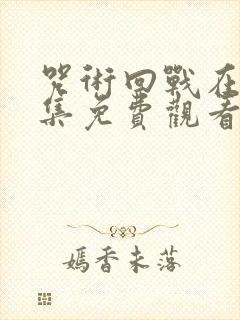 咒術回戰在
集免費觀看
嫣香未落